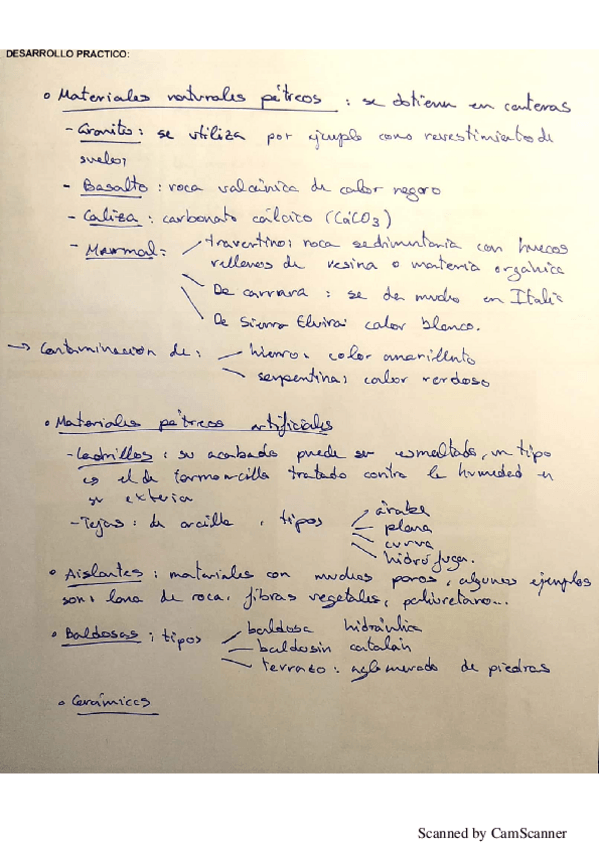 DESARROLLO PRACTICO:
• Materiales naturales pétreos : se obtienen en canteras
- Granito : se utiliza por ejemplo como revestimiento de
suelos
- Basalto : roca valcánica de color negro
- Caliza : carbonato cálcico (CaCO3)
- Marmol : travertino: roca sedimentaria con huecos
rellenos de resina o materia orgánica
De carrara : se da mucho en Italia
De Sierra Elvira: color blanco.
→ Contaminación de : hierro: color amarillento
serpentina: color verdoso
• Materiales pétreos artificiales
- Ladrillos : su acabado puede ser esmaltado, un tipo
es el de termoarcilla tratado contra la humedad en
su exterior
- Tejas : de arcilla, tipos árabe
plana
curva
hidrófuga.
• Aislantes : materiales con muchos poros, algunos ejemplos
son: lana de roca, fibras vegetales, poliuretano...
• Baldosas : tipos baldosa hidráulica
baldosin catalán
terrazo : aglomerado de piedras
• Cerámicas
Scanned by CamScanner